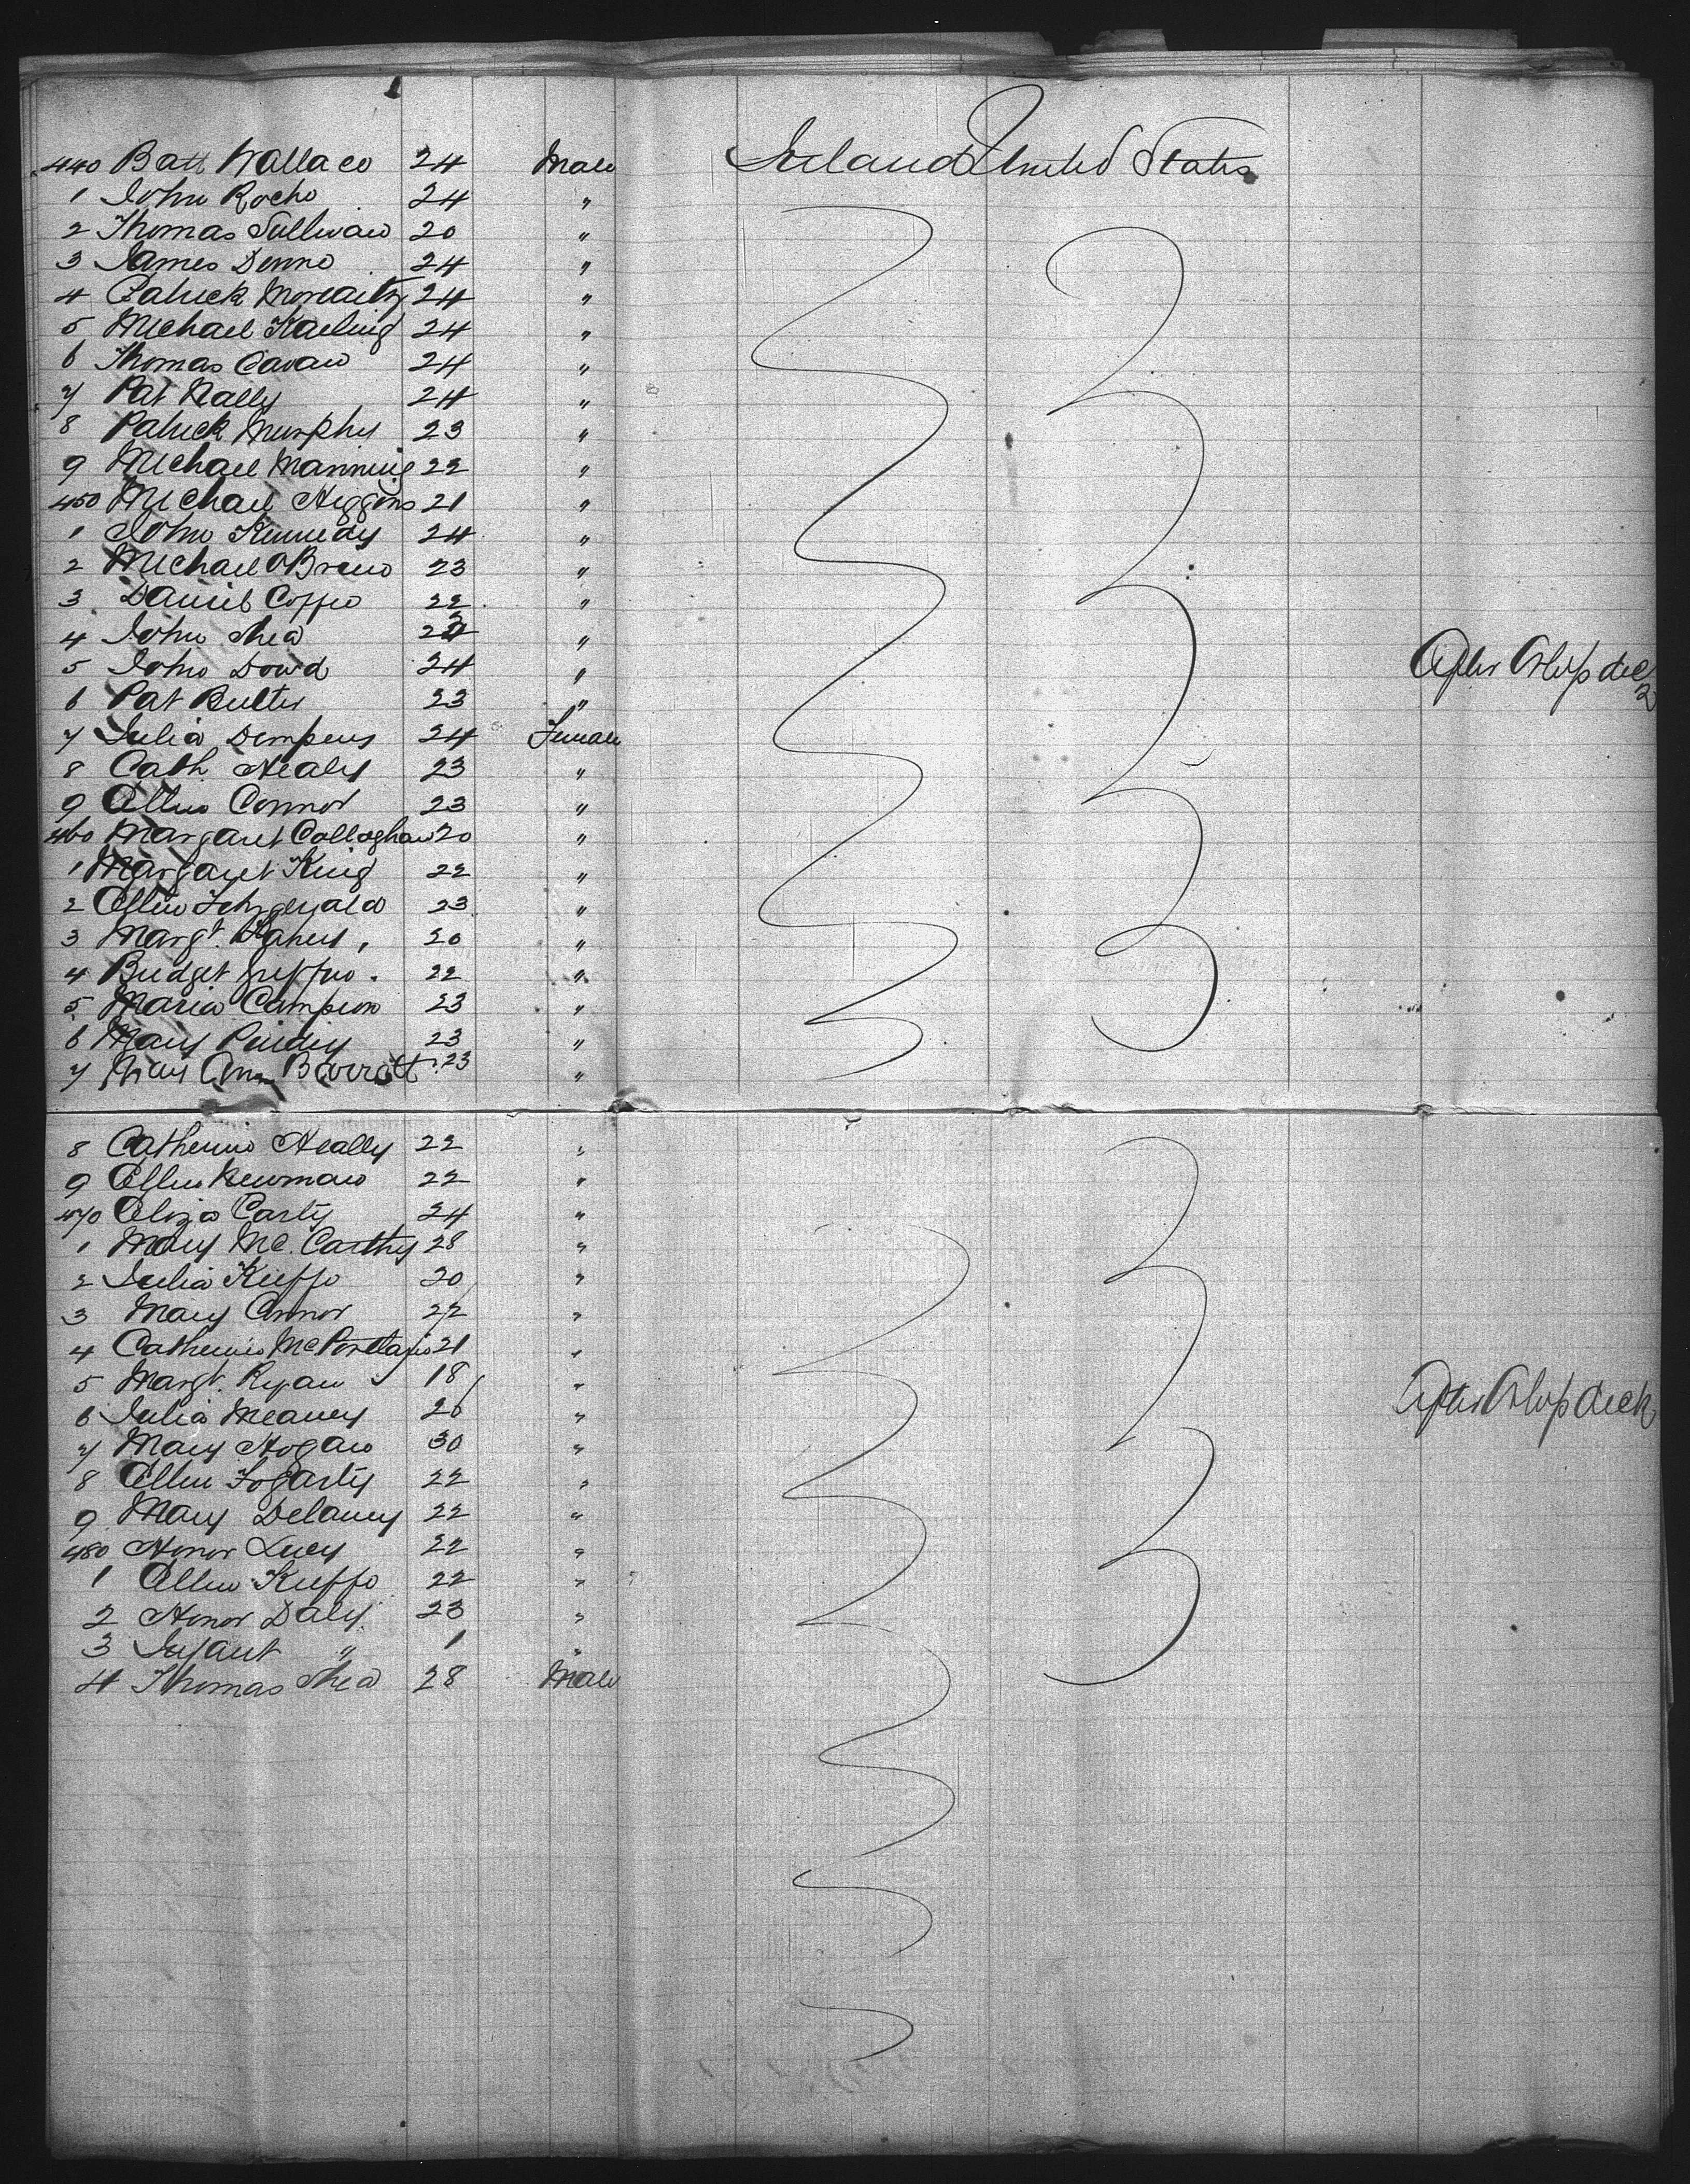 440 Batt Wallace 24 Male Ireland United States
1 John Roche 24 "
2 Thomas Sullivan 20 "
3 James Denno 24 "
4 Patrick Moriarty 24 "
5 Michael 24 "
6 Thomas Cavan 24 "
7 Pat Nally 24 "
8 Patrick Murphy 23 "
9 Michael Manning 22 "
450 Michael Higgins 21 "
1 John Kennedy 24 "
2 Michael OBrien 23 "
3 Daniel Coffee 22 "
4 John Shea "
5 John Dowd 24 " After Orlop deck
6 Pat Butler 23 "
7 Julia Dempsey 24 Female
8 Cath. Healy 23 "
9 Ellen Connor 23 "
460 Margaret Collaghan 20 "
1 Margaret King 22 "
2 Ellen Fitzgerald 23 "
3 Margt. 20 "
4 Bridget Griffin 22 "
5 Maria Campion 23 "
6 Mary 23 "
7 Mary Ann Barratt 23 "
8 Catherine Heally 22 "
9 Ellen Newman 22 "
470 Eliza Carty 24 "
1 Mary Mc. Carthy 28 "
2 Julia Kieffe 20 "
3 Mary Connor 22 "
4 Catherine 21 "
5 Margt. Ryan 18 "
6 Julia Meaney 26 " After Orlop deck
7 Mary Hogan 30 "
8 Ellen Fogarty 22 "
9 Mary Delaney 22 "
480 Honor Lucy 22 "
1 Ellen Kieffe 22 "
2 Honor Daly 23 "
3 Infant " 1 "
4 Thomas Shea 28 Male